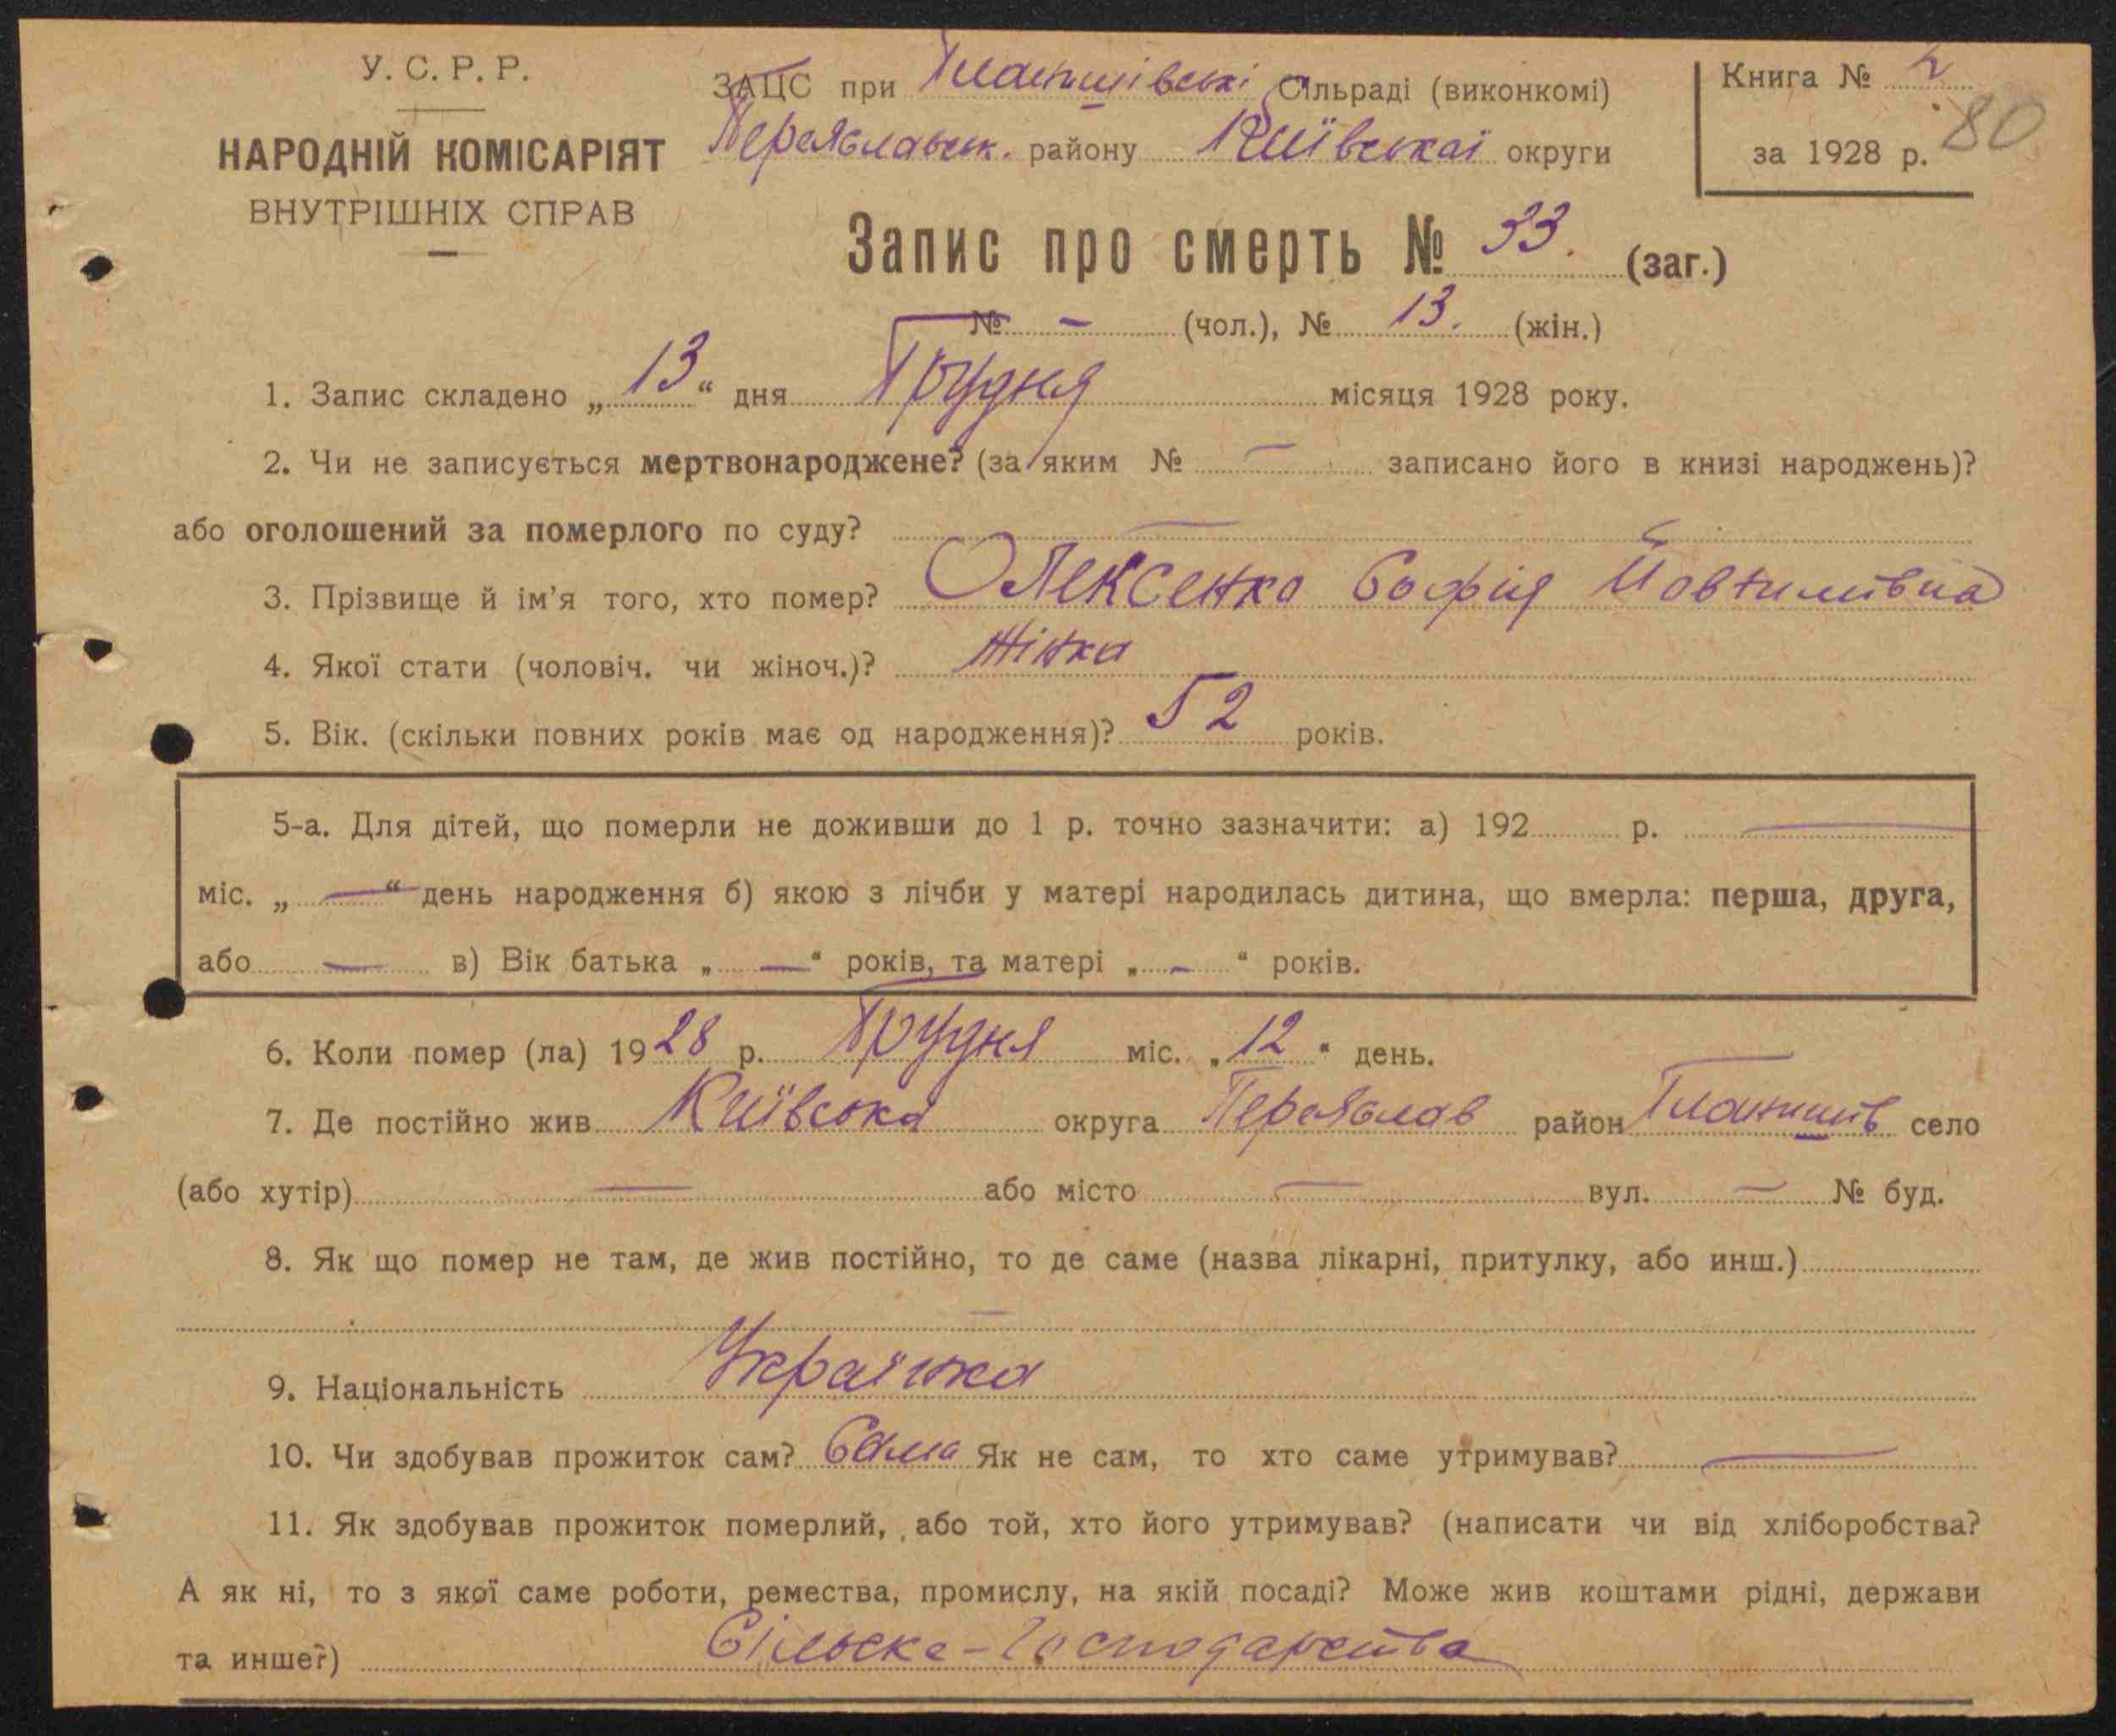 У. С. Р. Р.
НАРОДНІЙ КОМІСАРІЯТ
ВНУТРІШНІХ СПРАВ
ЗАЦС при Гланишівські Сільраді (виконкомі)
Переяславськ. району Київської округи
Книга № 2
80
за 1928 р.
Запис про смерть № 33. (заг.)
№ – (чол.), № 13. (жін.)
1. Запис складено „13“ дня Грудня місяця 1928 року.
2. Чи не записується мертвонароджене? (за яким № — записано його в книзі народжень)?
або оголошений за померлого по суду? —
3. Прізвище й ім'я того, хто помер? Олексенко Софія
4. Якої стати (чоловіч. чи жіноч.)? Жінка
5. Вік. (скільки повних років має од народження)? 52 років.
5-а. Для дітей, що померли не доживши до 1 р. точно зазначити: а) 192 р. —
міс. „—“ день народження б) якою з лічби у матері народилась дитина, що вмерла: перша, друга,
або — в) Вік батька „—“ років, та матері „–“ років.
6. Коли помер (ла) 1928 р. Грудня міс. „12“ день.
7. Де постійно жив Київська округа Переяслав район Гланишів село
(або хутір) — або місто — вул. — № буд.
8. Як що помер не там, де жив постійно, то де саме (назва лікарні, притулку, або инш.)
—
9. Національність Українка
10. Чи здобував прожиток сам? Сама Як не сам, то хто саме утримував? —
11. Як здобував прожиток померлий, або той, хто його утримував? (написати чи від хліборобства?
А як ні, то з якої саме роботи, ремества, промислу, на якій посаді? Може жив коштами рідні, держави
та инше?) Сільске-Господарства